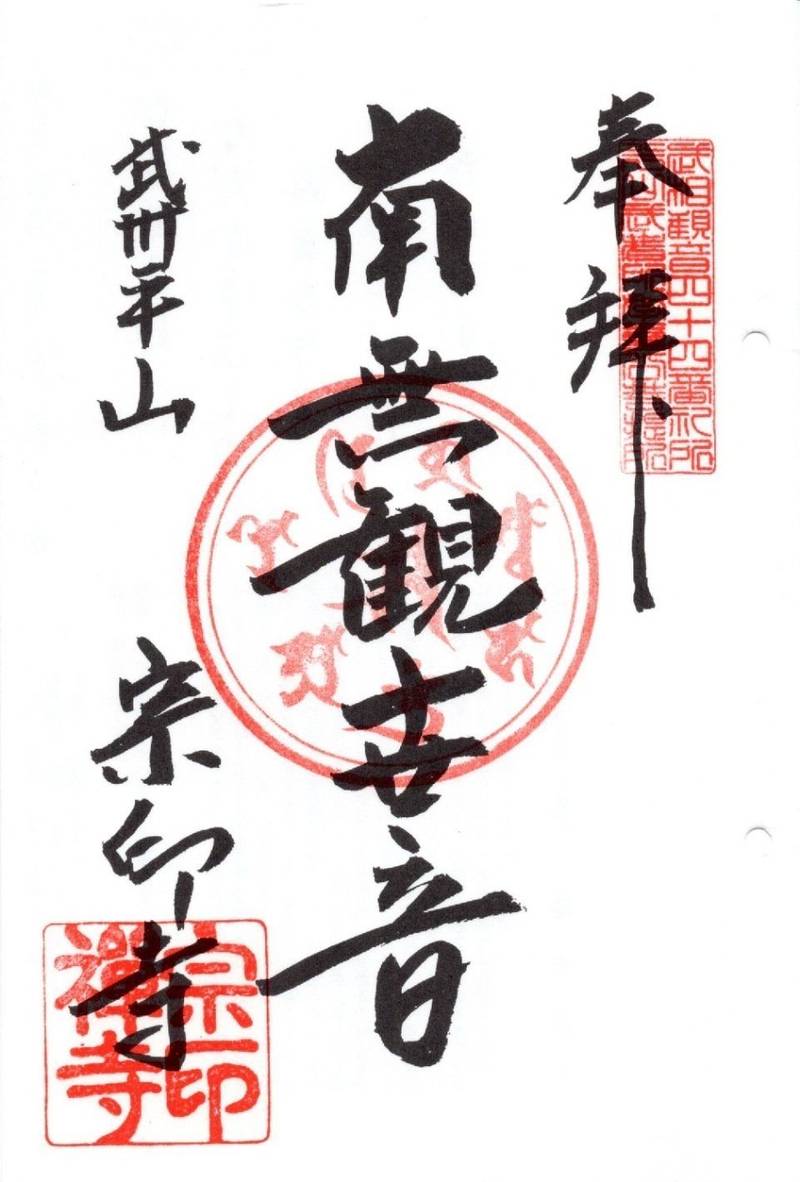 奉拝
武相観音四十四番札所
南無観世音
武州平山
宗印寺
宗印禅寺